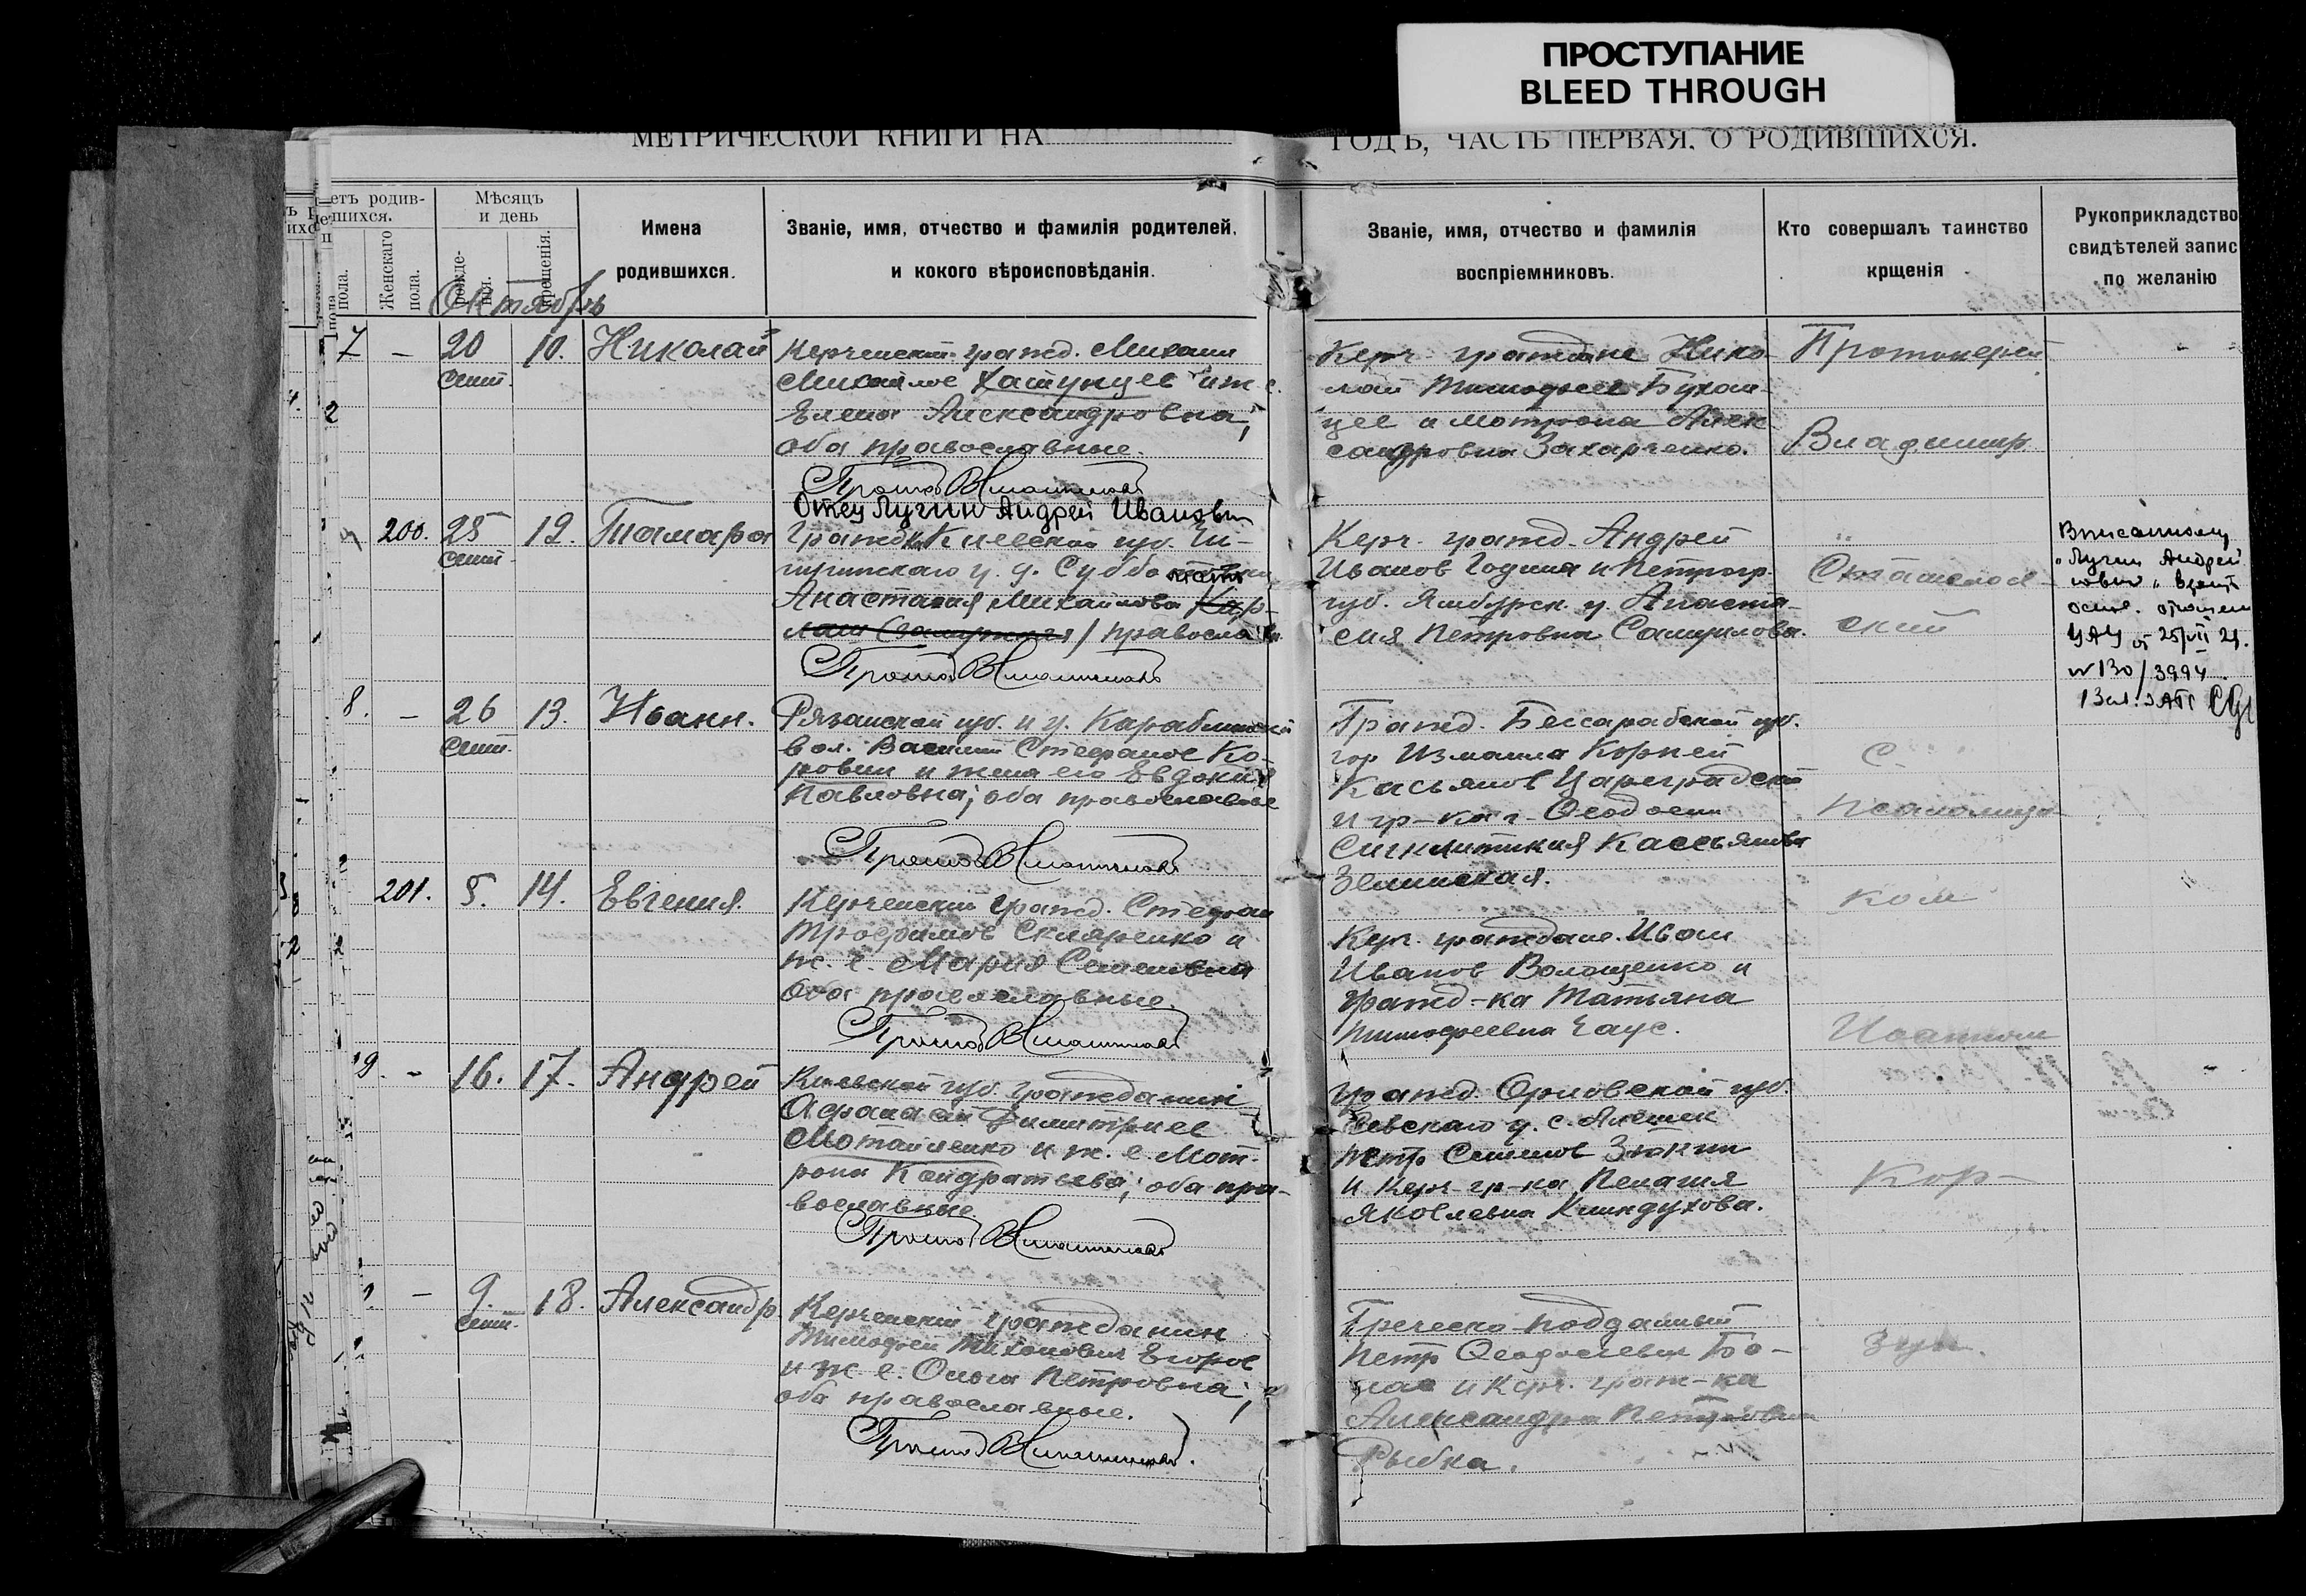 ПРОСТУПАНИЕ
BLEED THROUGH
МЕТРИЧЕСКОЙ КНИГИ НА
ГОДЪ, ЧАСТЬ ПЕРВАЯ, О РОДИВШИХСЯ.
етъ родив-
шихся.
Женскаго
пола.
Мѣсяцъ
и день
рожде-
нія.
крещенія.
Имена
родившихся.
Званіе, имя, отчество и фамилія родителей,
и кокого вѣроисповѣданія.
Званіе, имя, отчество и фамилія
воспріемниковъ.
Кто совершалъ таинство
крщенія
Рукоприкладство
свидѣтелей запис
по желанію
Октябрь
7 – 20 10. Николай
сент.
Керченский гражд. Михаил
Михайлов Хатунцев и ж. е.
Елена Александровна;
оба православные.
Керч. граждане Нико-
лай Тимофеев Бухан-
цев и Мотрона Алек-
сандровна Захарченко.
Протоиерей
Владимир
200. 25 12. Тамара
сент.
Отец Лугин Андрей Иванович
Гражд. Киевской губ. Чи-
гиринскаго у. д. Субботовки
мать
Анастасия Михайлова Кар-
/ правосла
Керч. гражд. Андрей
Иванов Година и Петрогр.
губ. Ямбургск. у. Анаста-
сия Петровна Самуилова.
ский
Вписанному
"Лугин Андрей
25/VII 21.
№ 130/3994
8. – 26 13. Иоанн.
сент.
Рязанской губ. и у. Караблинской
вол. Василий Стефанов Ко-
ровин и жена его Евдокия
Павловна; оба православные
Гражд. Бессарабской губ.
гор Измаила Корней
Касьянов Цареградский
и гр-ка г. Феодосии
Синклитикия Кассьянова
Зелинская.
С.
Псаломщи-
ком
201. 5. 14. Евгения.
Керченский гражд. Стефан
Трофимов Скляренко и
ж. е. Мария Семеновна
оба православные.
Керч. граждане Иван
Иванов Волощенко и
гражд-ка Татьяна
Тимофеевна Чаус.
Иоанном
9. – 16. 17. Андрей
Киевской губ. гражданин
Афанасий Димитриев
Мотайленко и ж. е. Мот-
рона Кондратьева; оба пра-
вославные
гражд. Орловской губ.
Севскаго у. с. Алешек
Петр Семенов Зюкин
и Керч. гр-ка Пелагия
Яковлевна Киндухова.
Кор-
– 9. 18. Александр
сент.
Керченский гражданин
Тимофей Тихонович Егоров
и ж е. Ольга Петровна;
оба православные.
Греческо-подданный
Петр Феодосьевич Бо-
и Керч. граж-ка
Александра Петровна
Рыбка.
зун.